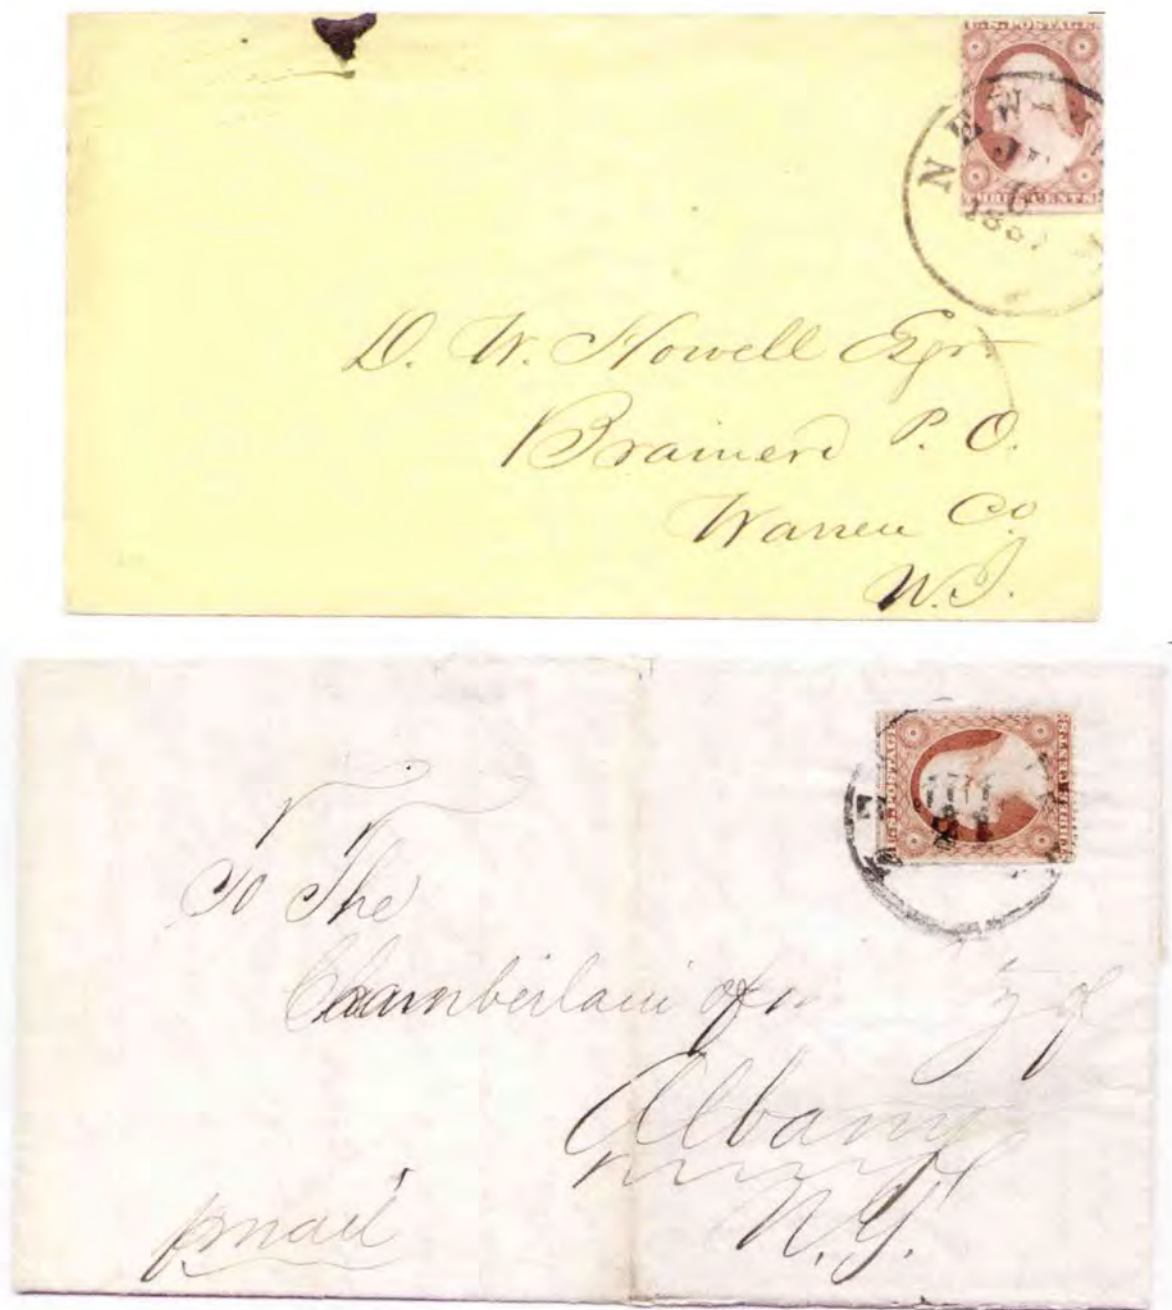 U.S. POSTAGE
THREE CENTS
NEW
6
D. W. Howell Esqr.
Brainerd P. O.
Warren Co
N. J.
U.S. POSTAGE
THREE CENTS
To The
Chamberlain of
of
Albany
N. Y.
pr mail